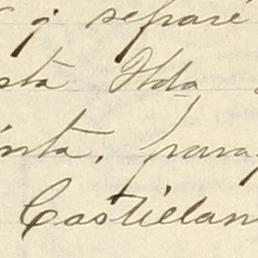 y separé
sta Hda
inta, para
Castellan